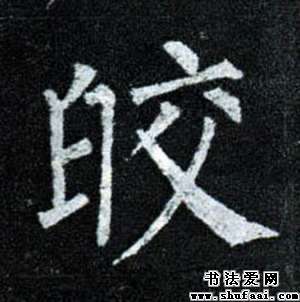 皎
书法爱网
www.shufaai.com